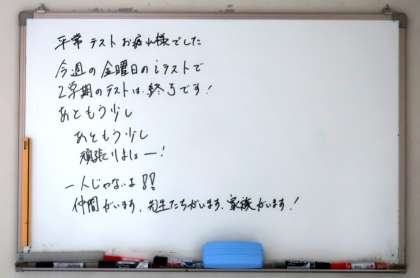 平常テストお疲れ様でした
今週の金曜日のiテストで
2学期のテストは、終了です!
あともう少し
あともう少し
頑張りましょー!
一人じゃないよ!!
仲間がいます、先生たちがいます、家族がいます!